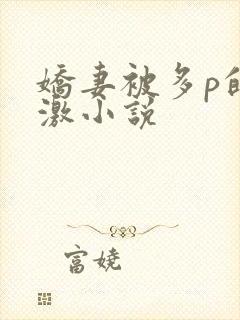 嬌妻被多p的
激小説
富娆